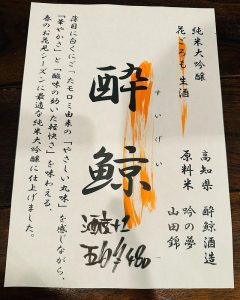 純米大吟醸
花ごろも 生酒
高知県 酔鯨酒造
原料米 吟の夢
山田錦
酔鯨
すいげい
薄目に白くにごったモロミ由来の「やさしい丸味」を感じながら、
「華やかさ」と「酸味の効いた軽快さ」を味わえる、
春のお花見シーズンに最適な純米大吟醸に仕上げました。
酒度+2
480